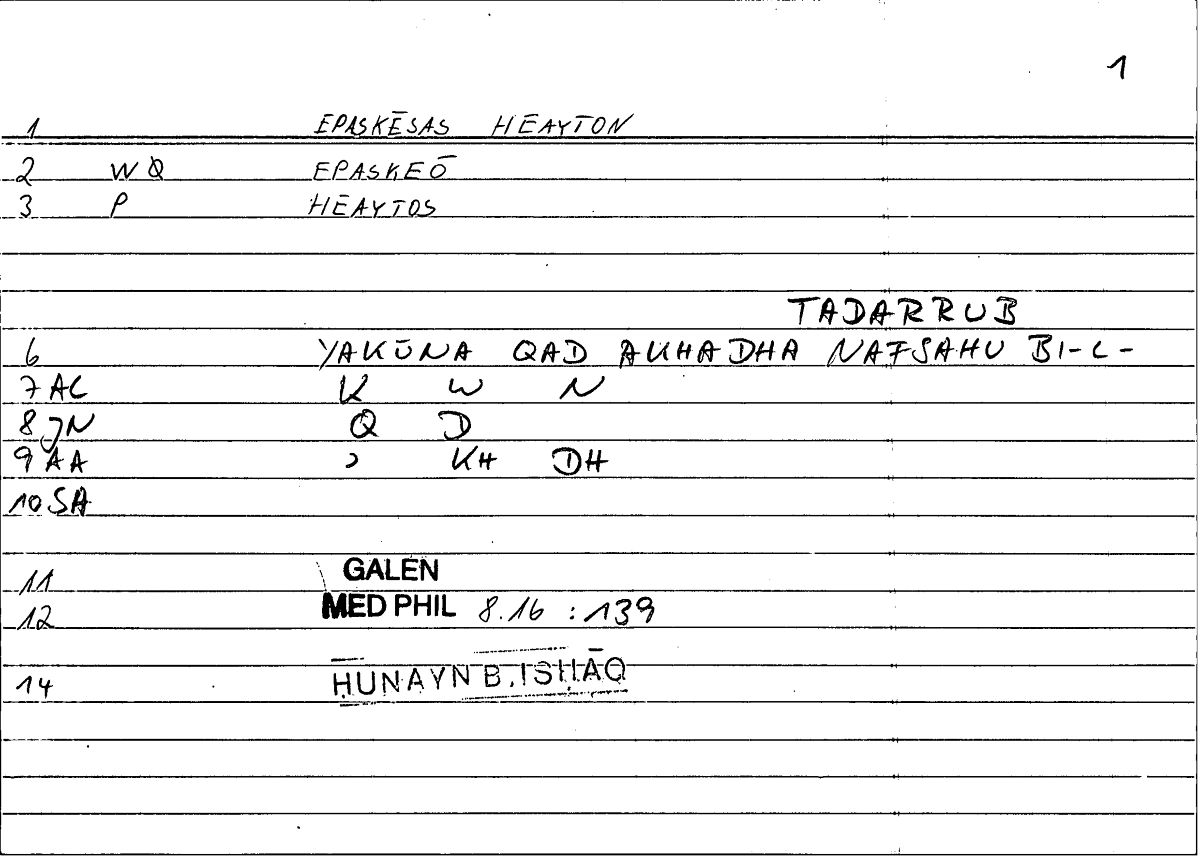 1
1 EPASKĒSAS HEAYTON
2 WQ EPASKEŌ
3 P HEAYTOS
TADARRUB
6 YAKŪNA QAD AKHADHA NAFSAHU BI-L-
7 AC K W N
8 JN Q D
9 AA ʾ KH DH
10 SA
11 GALEN
12 MED PHIL 8.16 : 139
14 ḤUNAYN B. ISḤĀQ